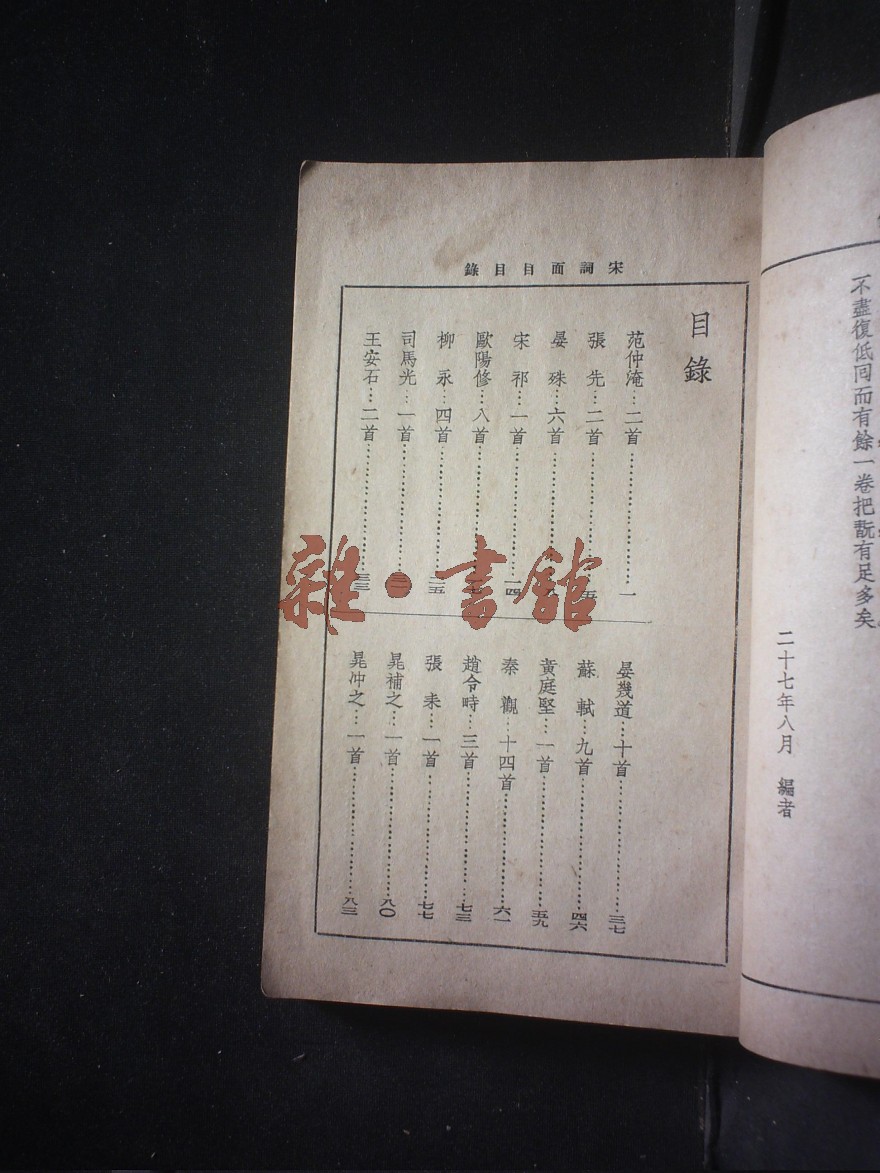 不盡復低回而有餘一卷把翫有足多矣
二十七年八月　編者
宋詞面目目錄
目錄
范仲淹…二首…一
張先…二首…五
晏殊…六首…八
宋祁…一首…一四
歐陽修…八首
柳永…四首…二五
司馬光…一首…三一
王安石…二首…三三
晏幾道…十首…三七
蘇軾…九首…四六
黃庭堅…一首…五九
秦觀…十四首…六一
趙令時…三首…七三
張耒…一首…七七
晁補之…一首…八〇
晁冲之…一首…八三
雜·書館